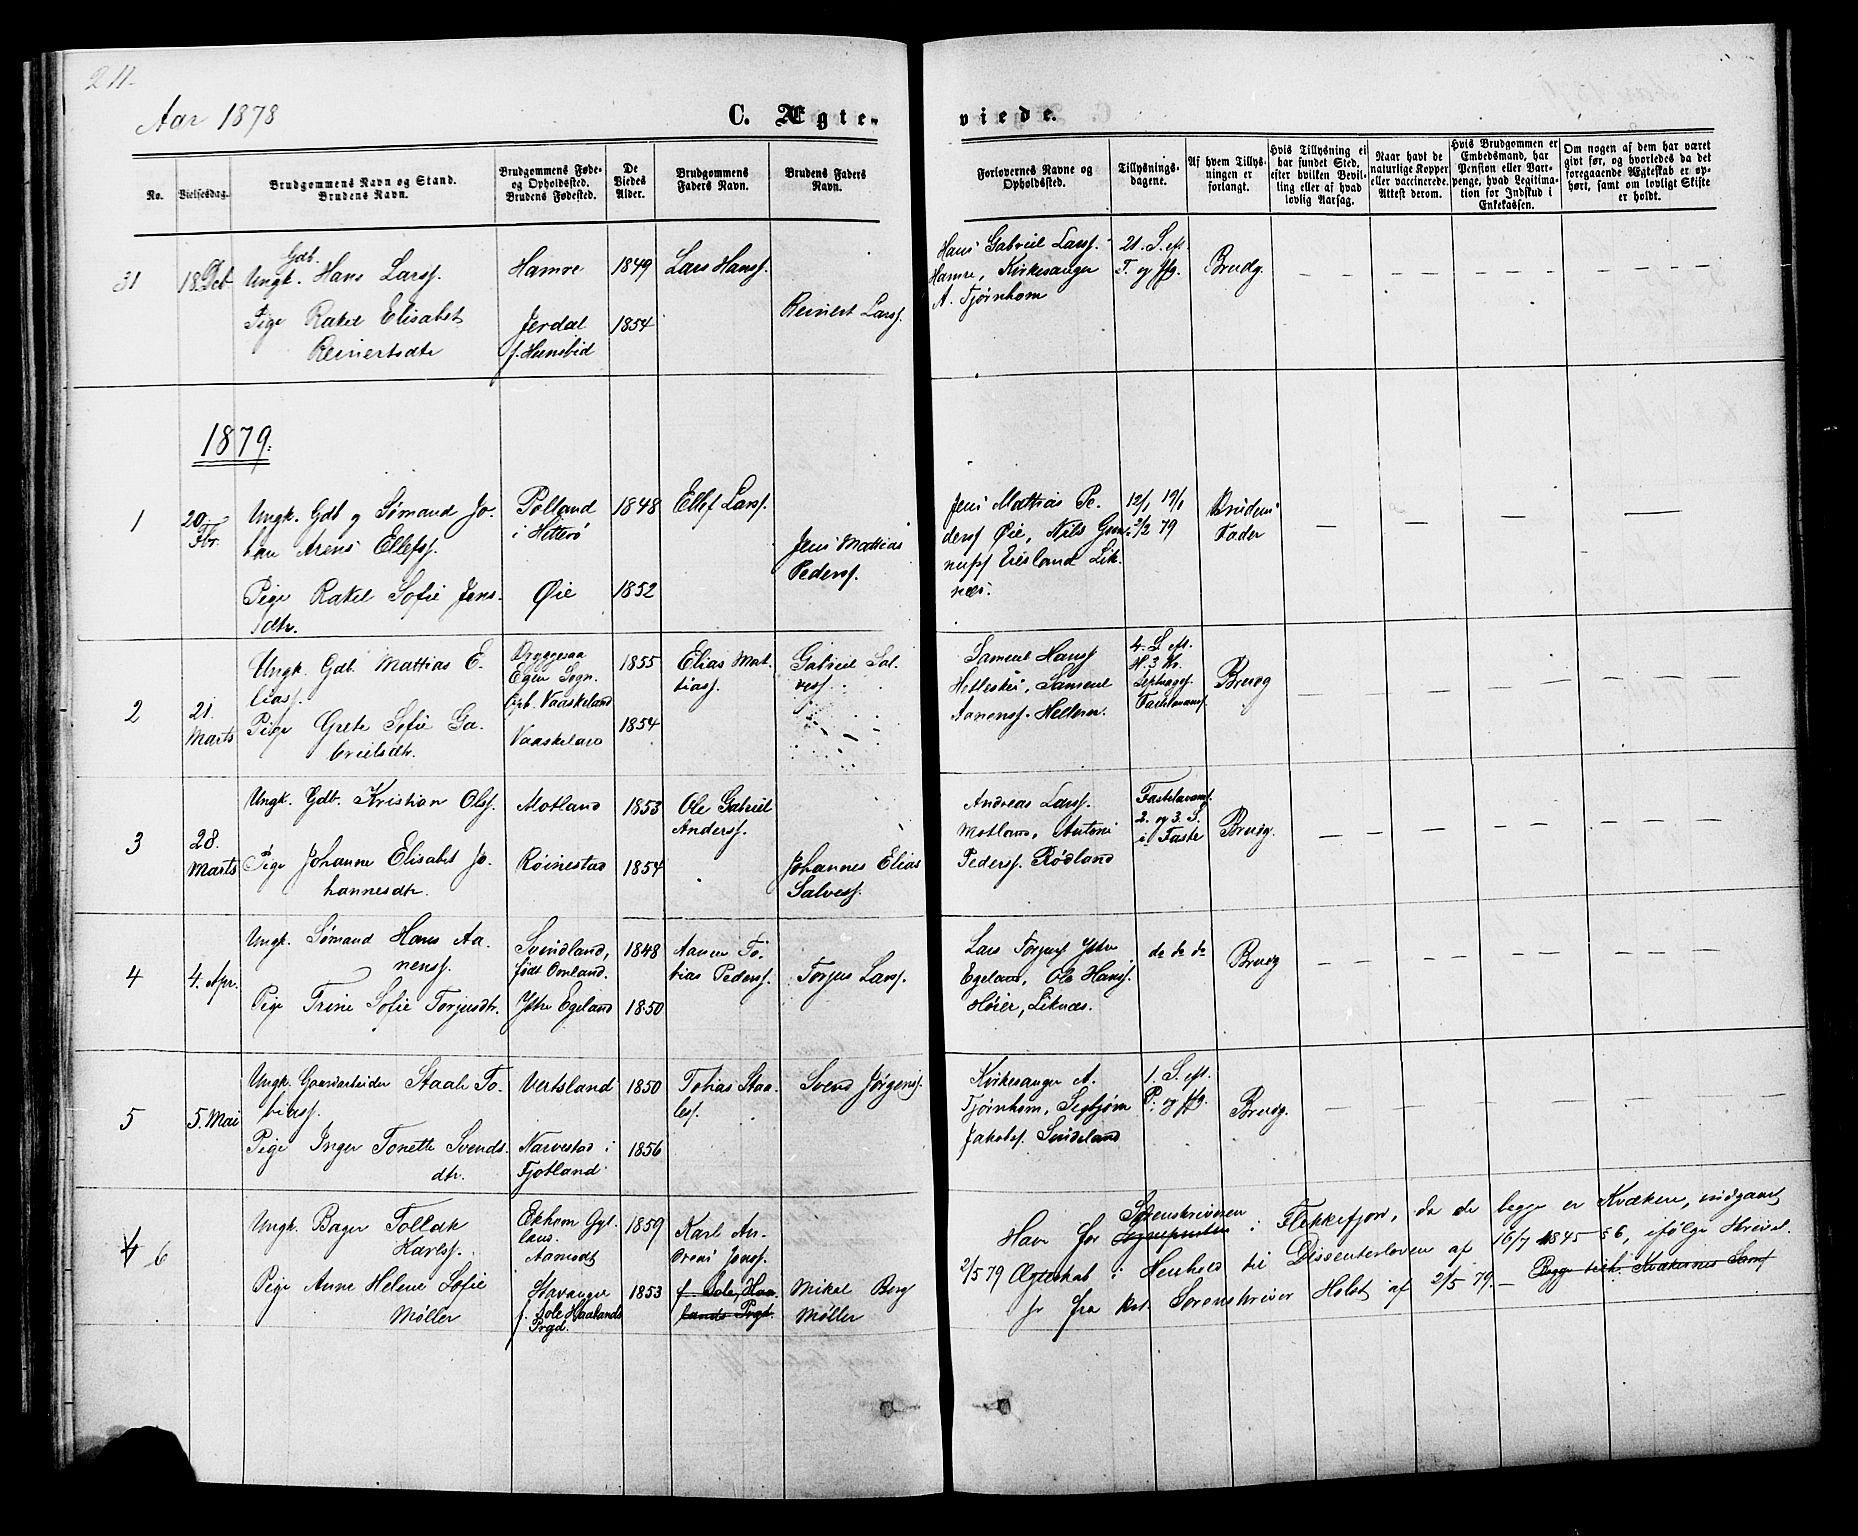 211.
Aar 1878
C. Ægte-
viede.
No.
Vielsesdag.
Brudgommens Navn og Stand.
Brudens Navn.
Brudgommens Føde-
og Opholdsted.
Brudens Fødested.
De
Viedes
Alder.
Brudgommens
Faders Navn.
Brudens Faders
Navn.
Forlovernes Navne og
Opholdsted.
Tillysnings-
dagene.
Af hvem Tillys-
ningen er
forlangt.
Hvis Tillysning ei
har fundet Sted,
efter hvilken Bevil-
ling eller af hvad
lovlig Aarsag.
Naar havt de
naturlige Kopper
eller vaccinerede.
Attest derom.
Hvis Brudgommen er
Embedsmand, har
Pension eller Var-
penge, hvad Legitima-
tion for Indskud i
Enkekassen.
Om nogen af dem har været
givt før, og hvorledes da det
foregaaende Ægteskab er op-
hørt, samt om lovligt Skifte
er holdt.
31
18. Dcb
Gdb.
Ungk. Hans Larss.
Pige Rakel Elisabet
Reinertsdtr
Hamre
Jerdal
f. Hunsbid
1849
1854
Lars Hanss.
Reinert Larss.
Hans Gabriel Larss.
Hamre, Kirkesanger
A. Tjørnhom
21. S. eft.
T. og ffg.
Brudg.
1879.
1
20.
Fbr.
Ungk. Gdb og Sømand Jo-
han Arens Ellefss.
Pige Rakel Sofie Jens-
dtr.
Polland
i Hitterø
Øie
1848
1852
Ellef Larss.
Jens Mattias
Pederss.
Jens Mattias Pe-
derss Øie, Nils Gun-
nufss Eiesland Lik-
næs.
12/1 19/1
2/2 79
Brudens
Fader
2
21.
Marts
Ungk. Gdb. Mattias E-
liass.
Pige Grete Sofie Ga-
brielsdtr.
Bryggesaa
Egen Sogn.
Opb. Vaaskeland
Vaaskeland
1855
1854
Elias Mat-
tiass.
Gabriel Sal-
vess.
Samuel Hanss
Hetleskei, Samuel
Aanenss. Helleren.
4. S. eft.
H. 3 K.
Septuages.
Fastelavns.
Brudg
3
28.
Marts
Ungk. Gdb. Kristian Olss.
Pige Johanne Elisabet Jo-
hannesdtr.
Motland
Røinestad
1853
1854
Ole Gabriel
Anderss.
Johannes Elias
Salvess.
Andreas Larss.
Motland, Antoni
Pederss. Rødland
Fastelavns.
2. og 3. S.
i Faste
Brudg.
4
4. Apr.
Ungk. Sømand Hans Aa-
nenss.
Pige Trine Sofie Torjusdtr.
Svindland,
født Omland.
Ytre Egeland
1848
1850
Aanen To-
bias Pederss.
Torjus Larss.
Lars Torjuss Ytre
Egeland, Ole Hanss.
Høier, Liknæs.
do do do
Brudg
5
5. Mai
Ungk. Gaardarbeider Staale To-
biass.
Pige Inger Tonette Svends-
dtr.
Vertsland
Narvestad i
Fjotland
1850
1856
Tobias Staa-
less.
Svend Jørgenss.
Kirkesanger A.
Tjørnhom, Segbjørn
Jakobss. Sindeland
1. S. eft.
P. og ffg.
Brudg.
6
Ungk. Bager Tollak
Karlss.
Pige Anne Helene Sofie
Møller
Ekhom Gyl.
land.
Aamodt
Stavanger
f. Dole Haalands
Prgd.
1859
1853
Karl An-
dreas Jonss.
f. Dole, Haa-
lands Prgd.
Mikal Berg
Møller
Have for Sorenskriveren
Sognepresten i Flekkefjord, da de begge er Kvækere, indgaaet
2/5 79 Ægteskab i Henhold til Dissenterloven af 16/7 1845 § 6, ifølge Skrivel.
fr fra kst. Sorenskriver Holst af 2/5 79. — Begge tilh. Kvækernes Samf